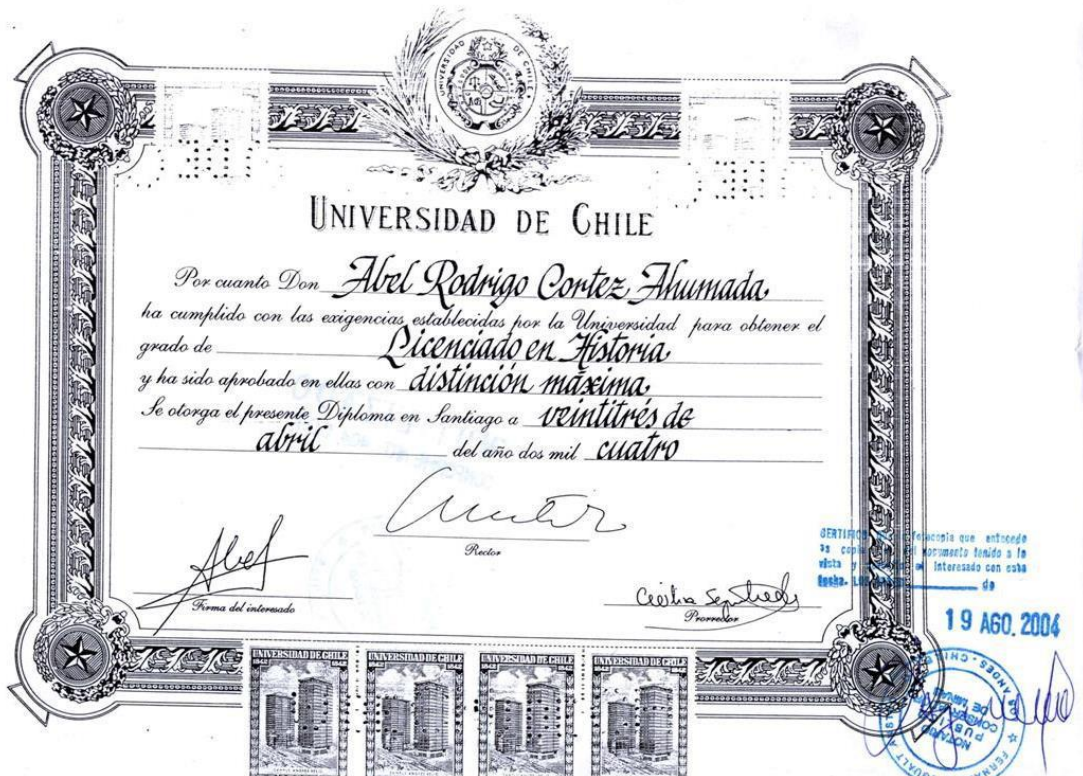 UNIVERSIDAD DE CHILE
UNIVERSIDAD DE CHILE
Por cuanto Don Abel Rodrigo Cortez Ahumada
ha cumplido con las exigencias establecidas por la Universidad para obtener el
grado de Licenciado en Historia
y ha sido aprobado en ellas con distinción máxima
Se otorga el presente Diploma en Santiago a veintitrés de
abril del año dos mil cuatro
Rector
Abel
Firma del interesado
Cecilia Sepúlveda
Prorrector
que antecede
documento tenido a la
vista y interesado con esta
fecha. de
19 AGO. 2004
UNIVERSIDAD DE CHILE UNIVERSIDAD DE CHILE UNIVERSIDAD DE CHILE UNIVERSIDAD DE CHILE
1842 1842 1842 1842
NOTARIO